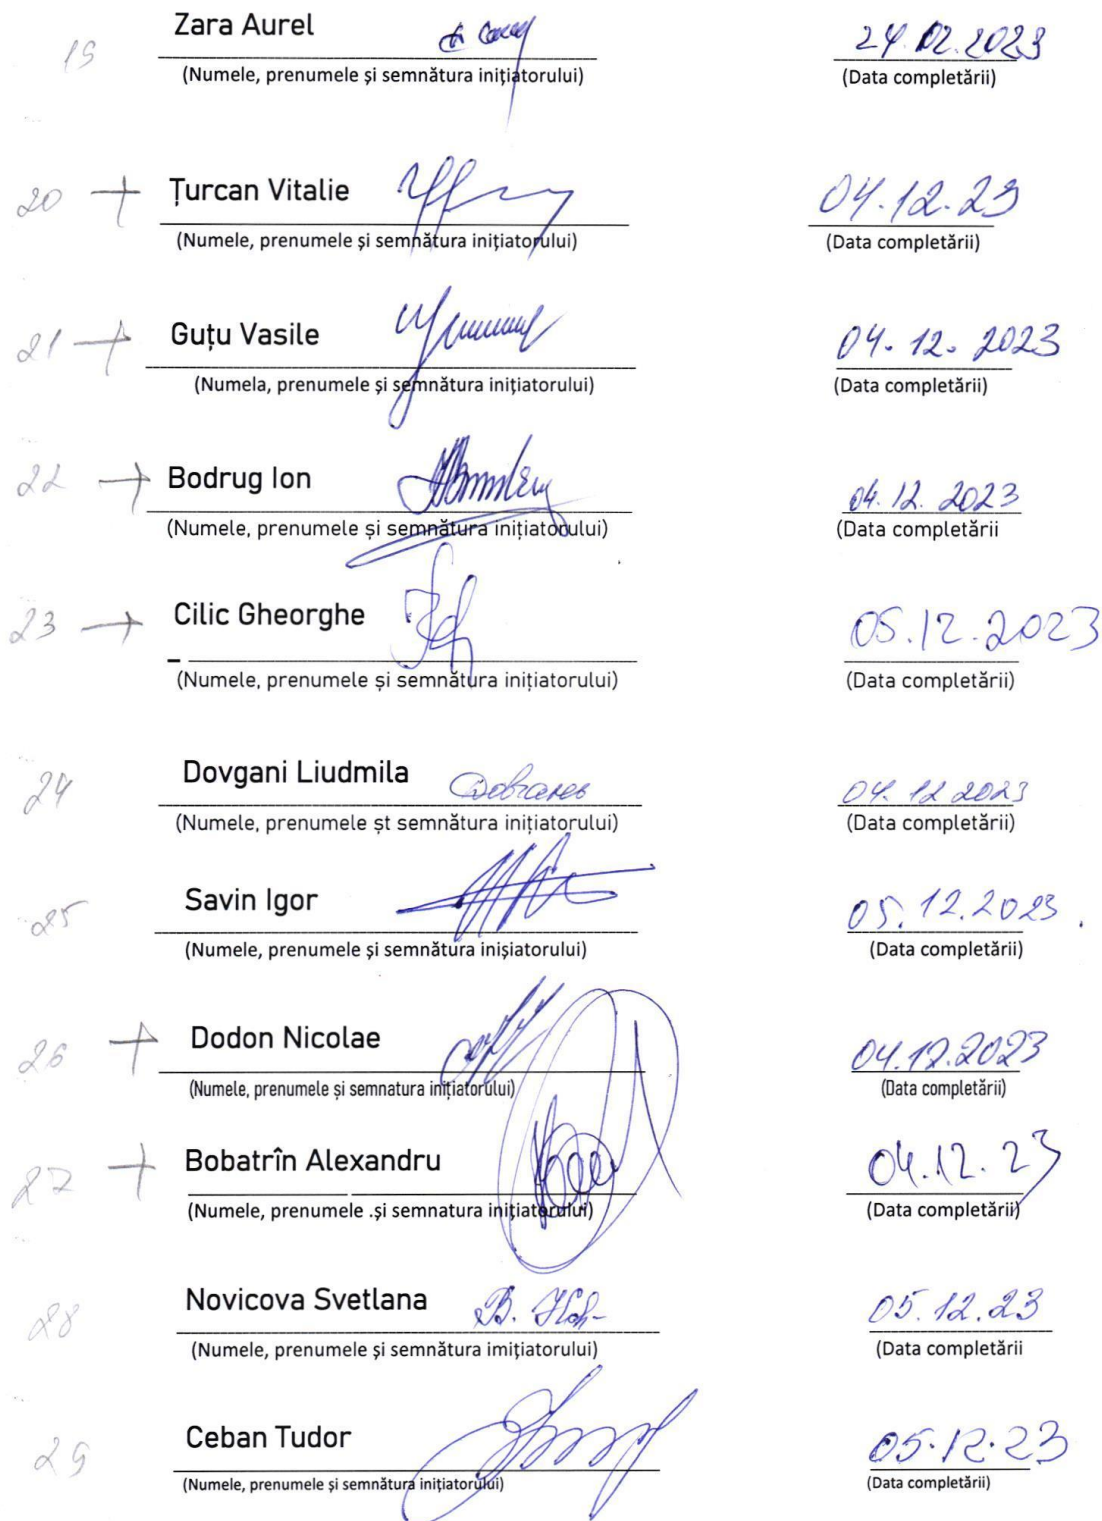 19 Zara Aurel 24.02.2023
(Numele, prenumele și semnătura inițiatorului) (Data completării)
20 Țurcan Vitalie 04.12.23
(Numele, prenumele și semnătura inițiatorului) (Data completării)
21 Guțu Vasile 04.12.2023
(Numela, prenumele și semnătura inițiatorului) (Data completării)
22 Bodrug Ion 04.12.2023
(Numele, prenumele și semnătura inițiatorului) (Data completării
23 Cilic Gheorghe 05.12.2023
(Numele, prenumele și semnătura inițiatorului) (Data completării)
24 Dovgani Liudmila 04.12 2023
(Numele, prenumele șt semnătura inițiatorului) (Data completării)
25 Savin Igor 05.12.2023.
(Numele, prenumele și semnătura inișiatorului) (Data completării)
26 Dodon Nicolae 04.12.2023
(Numele, prenumele și semnatura inițiatorului) (Data completării)
27 Bobatrîn Alexandru 04.12.23
(Numele, prenumele .și semnatura inițiatorului) (Data completării)
28 Novicova Svetlana 05.12.23
(Numele, prenumele și semnătura imițiatorului) (Data completării
29 Ceban Tudor 05.12.23
(Numele, prenumele și semnătura inițiatorului) (Data completării)